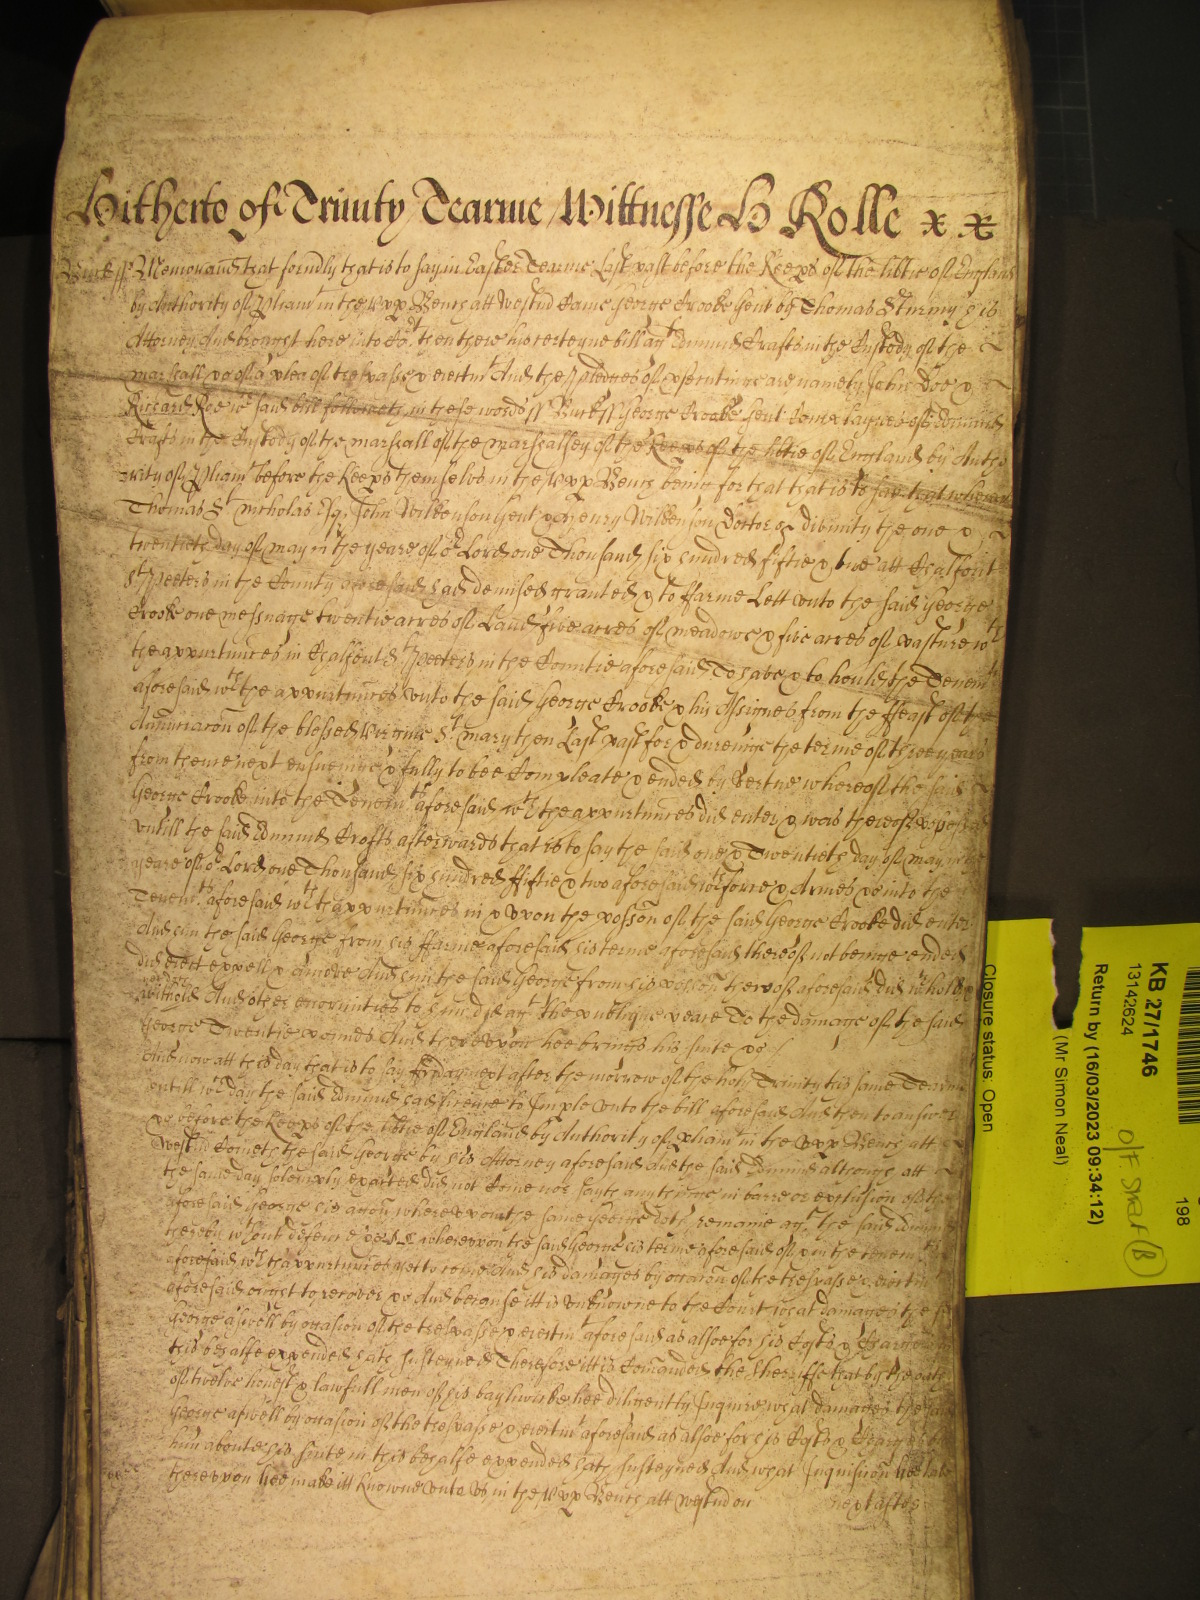 Hitherto of Trinity Tearme Wittnesse H Rolle x x
Bucks ss Memorand that formly that is to say in Easter Tearme Last past before the Keeps of the libtie of England
by Authority of Pliamt in the upp Bench att Westm Came George Crooke gent by Thomas Sturmy his
Attorney And brought here into Co:rt then there his certeyne bill agt Edmund Crafts in the Custody of the
marshall &c of a plea of trespasse & eiectmt And the pledges of psecutinge are namely John Doe &
Richard Roe wch said bill followeth in these words ss Bucks ss George Crooke gent Complaynes of Edmund
Crafts in the Custody of the marshall of the marshalsey of the Keeps of the libtie of England by Autho
rity of Pliamt before the Keeps themselves in the upp Bench being for that that is to say that whereas
Thomas St Nicholas Esq. John Wilkenson gent & Henry Wilkenson doctor of divinity the one &
twentieth day of may in the yeare of or Lord one Thousand six hundred fiftie & two att Chalfont
St Peeters in the County aforesaid had demised granted & to ffarme Lett unto the said George
Crooke one messuage twentie acres of Land five acres of meadowe & five acres of pasture wth
the appurtnces in Chalfont St Peeters in the Countie aforesaid To have & to hould the Tenemts
aforesaid wth the appurtnces unto the said George Crooke & his Assignes from the ffeast of the
Annuntiacon of the blessed Virgine St mary then Last past for & dureinge the terme of three years
from thence next ensueinge & fully to bee Compleate & ended by Vertue whereof the said
George Crooke into the Tenemts aforesaid wth the appurtnces did enter & was thereof possessed
untill the said Edmund Crofts afterwards that is to say the said one & Twentieth day of may in the
yeare of or Lord one Thousand six hundred ffiftie & two aforesaid wth force & Armes &c into the
Tenemts aforesaid wth thappurtnces in & upon the posson of the said George Crooke did enter
And him the said George from his ffarme aforesaid his terme aforesaid thereof not beinge ended
did eiect expell & amove And him the said George from his posson thereof aforesaid did wthhold
And other enormities to him did agt the publique peace To the damage of the said
George Twentie pounds And thereupon hee brings his suite &c
And now att this day that is to say ffryday next after the morrow of the holy Trinity this same Tearme
untill wch day the said Edmund had licence to Imple unto the bill aforesaid And then to answer
&c before the Keeps of the libtie of England by Authority of pliamt in the upp Bench att
Westm Cometh the said George by his Attorney aforesaid And the said Edmund although att
the same day solemply exacted did not Come nor sayth any thinge in barre or exclusion of the
aforesaid George his accon whereupon the same George doth remaine agt the said Edmund
thereby wthout defence &c wherevpon the said George his terme aforesaid of & in the tenemts
aforesaid wth thappurtnces yet to come And his damages by occacon of the trespasse & eiectmt
aforesaid ought to recover &c And because itt is unknowne to the Court what damages the sd
George aswell by occasion of the trespasse & eiectmt aforesaid as alsoe for his Costs & Charges
this behalfe expended hath susteyned Therefore itt is Comanded the Sherriffe that by the oath
of twelve honest & lawfull men of his bayliwicke hee diligently Inquire what damages the said
George aswell by occasion of the trespasse & eiectmt aforesaid as alsoe for his Costs & Charges by
him about his suite in this behalfe expended hath susteyned And what Inquisicon hee take
thereupon hee make itt Knowne unto us in the upp Bench att Westm on next after
KB 27/1746
13142624
Return by (16/03/2023 09:34:12)
(Mr Simon Neal)
Closure status: Open
198